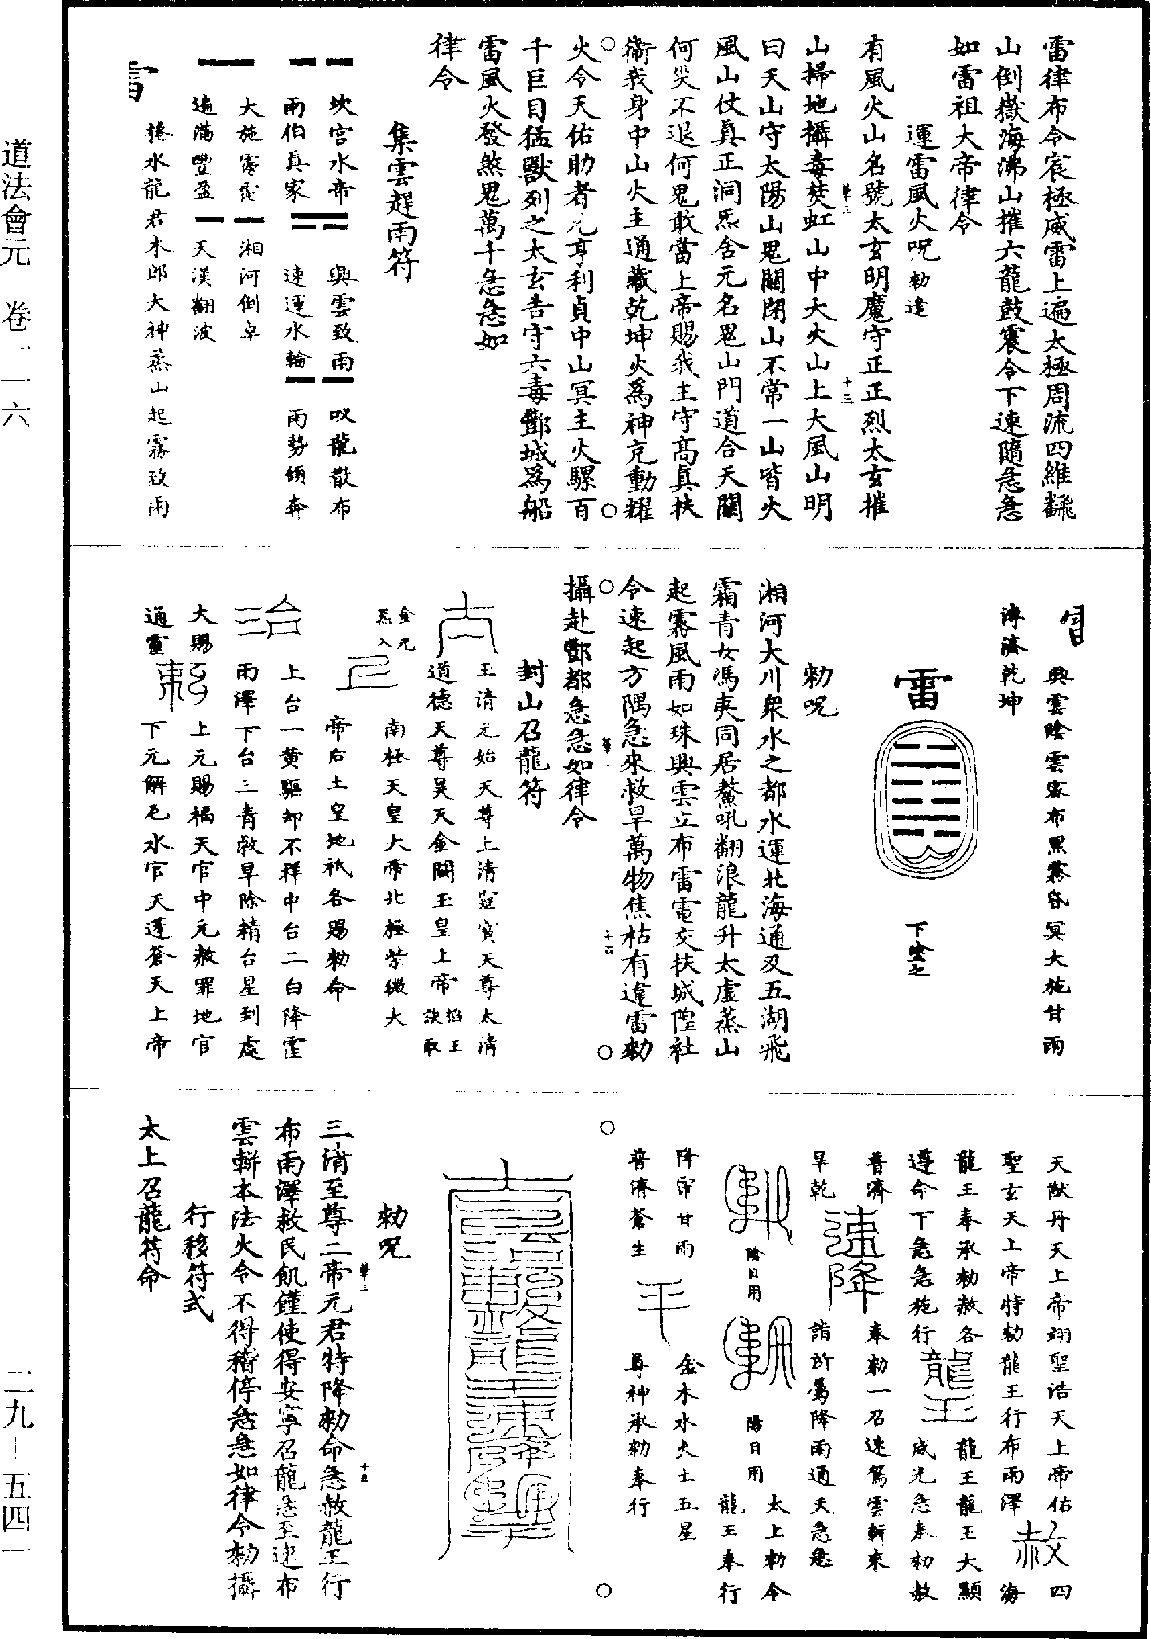 雷律布令宸極威雷上遍太極周流四維飜
山倒嶽海沸山摧六龍鼓震令下速隨急急
如雷祖大帝律令
運雷風火呪勅遣
有風火山名號太玄明魔守正正烈太玄摧
山掃地攝毒焚虹山中大火山上大風山明
曰天山守太陽山鬼關閉山不常一山皆火
風山仗真正洞炁含元名鬼山門道合天關
何災不退何鬼敢當上帝賜我主守高真扶
衛我身中山火主通藏乾坤火為神充動耀
火令天佑助者元亨利貞中山冥主火騾百
千巨目猛獸列之太玄告守六毒酆城為船
雷風火發煞鬼萬千急急如
律令
集雲趕雨符
坎宫水帝 興雲致雨 吸龍散布
雨伯真家 速運水輪 雨勢傾奔
大施霶霈 湘河倒卓
遠滿豐盈 天漢翻波
雷 捲水龍君木郎大神蒸山起霧致雨
興雲陰雲密布黑霧昏冥大施甘雨
溥濟乾坤
雷
下噀之
勅呪
湘河大川衆水之都水運北海通及五湖飛
霜青女馮夷同居鰲吼翻浪龍升太虛蒸山
起霧風雨如珠興雲立布雷電交扶城隍社
令速起方隅急來救旱萬物焦枯有違雷勅
攝赴酆都急急如律令
封山召龍符
玉清元始天尊上清靈寶天尊太清
道德天尊昊天金闕玉皇上帝 掐玉訣取
金元炁入 南極天皇大帝北極紫微大
帝后土皇地祇各賜勅命
上台一黄驅却不祥中台二白降霆
雨澤下台三青救旱除精台星到處
大賜 上元賜福天官中元赦罪地官
通靈 下元解厄水官天蓬蒼天上帝
天猷丹天上帝翊聖皓天上帝佑
聖玄天上帝特勅龍王行布雨澤 赦 四海
龍王奉承勅赦各 龍王 龍王龍王大顯
遵命下急急施行 威光急奉勅赦
普濟 奉勅一召速駕雲軿來
旱乾 速降 詣所籌降雨通天急急
陰日用 陽日用 太上勅令
龍王奉行
降霈甘雨 金木水火土五星
普濟蒼生 尊神承勅奉行
勅呪
三清至尊二帝元君特降勅命急赦龍王行
布雨澤救民飢饉使得安寧召龍急至速布
雲軿本法火令不得稽停急急如律令勅攝
行移符式
太上召龍符命
道法會元 卷一一六
二九–五四一